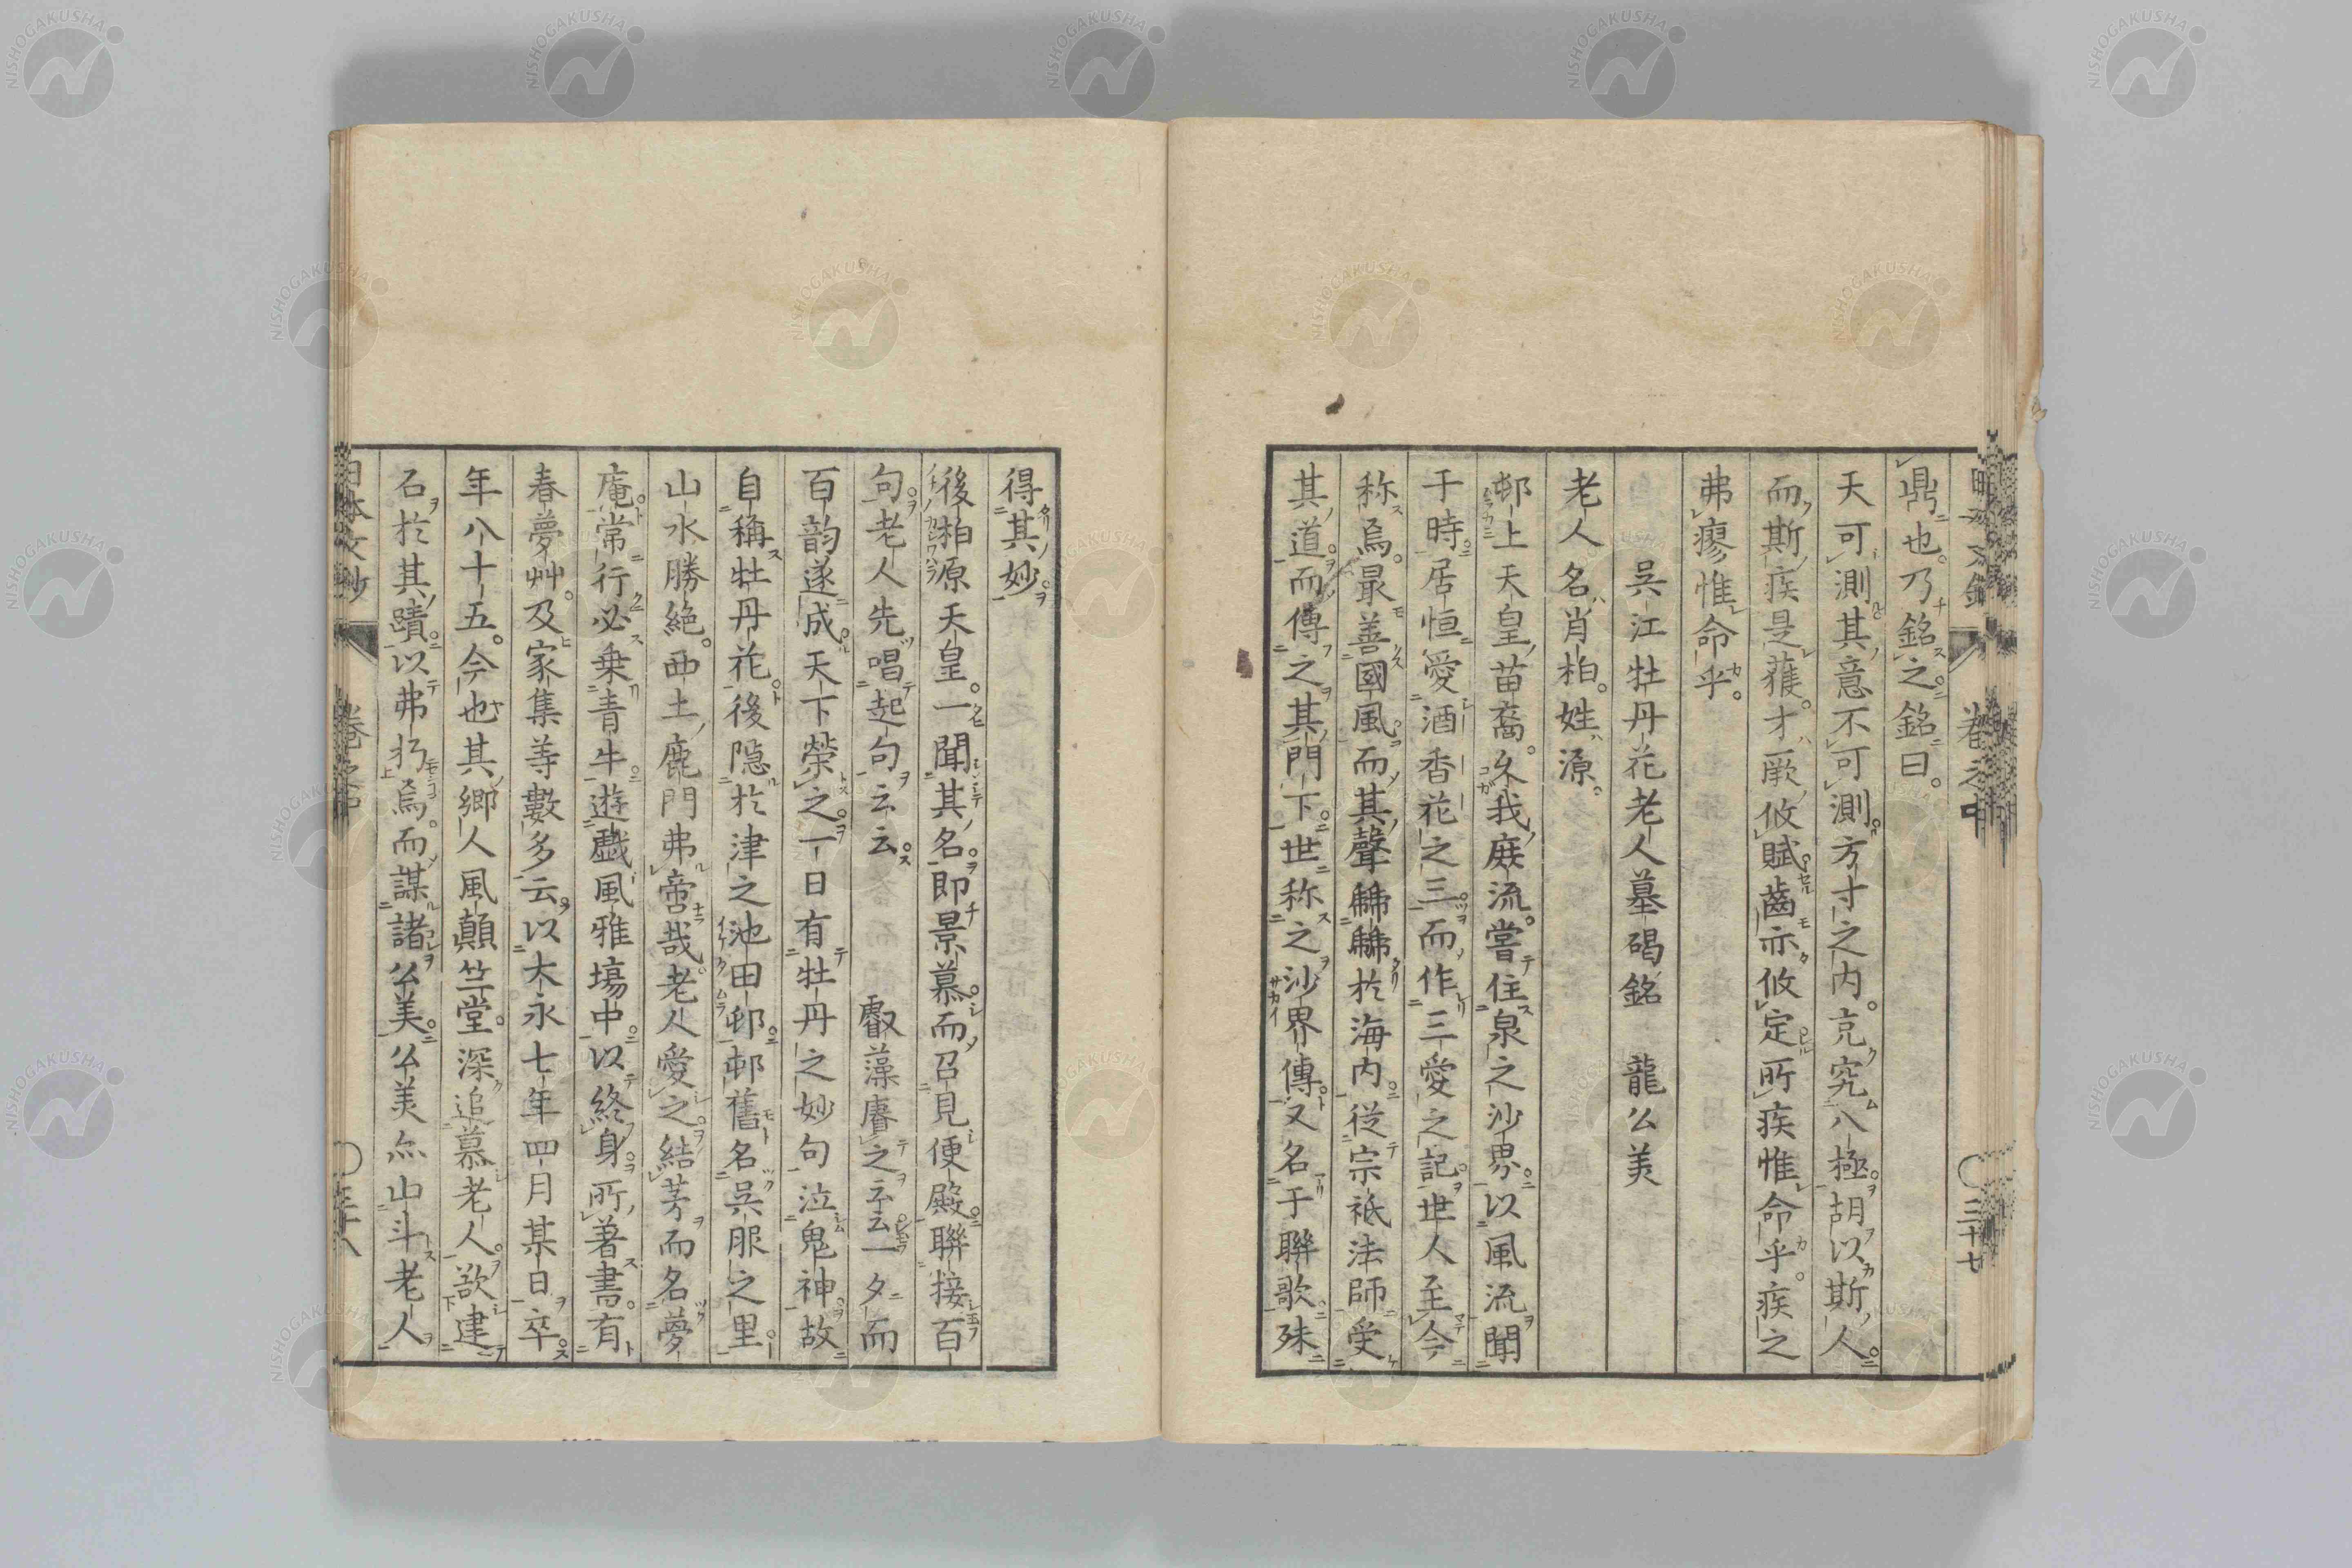 鼎也。乃銘之。銘曰。
天可測其意不可測。方寸之内。克究八極。胡以斯人。
而斯疾是獲。才厥攸賦。齒亦攸定。所疾惟命乎。疾之
弗瘳惟命乎。
吳江牡丹花老人墓碣銘 龍公美
老人名肖柏。姓源。
邨上天皇苗裔。久我庶流。嘗住泉之沙界。以風流聞
于時。居恒愛酒香花之三。而作三愛之記。世人至今
称焉。最善國風。而其聲於海内。從宗祇法師受
其道。而傳之其門下。世称之沙界傳。又名于聯歌。殊
得其妙。
後柏原天皇。一聞其名。即景慕。而召見便殿。聯接百
句。老人先唱起句云云。 叡藻賡之云云。一夕而
百韵遂成。天下榮之。一日有牡丹之妙句泣鬼神。故
自稱牡丹花。後隠於津之池田邨。邨舊名吳服之里。
山水勝絶。西土鹿門弗啻哉。老人愛之。結茅而名夢
庵。常行必乗青牛。遊戯風雅塲中。以終身。所著書。有
春夢艸。及家集等數多云。以大永七年四月某日卒。
年八十五。今也其郷人風顛竺堂。深追慕老人。欲建
石於其蹟。以弗朽焉。而謀諸公美。公美亦山斗老人
卷之中
三十七
NISHOGAKUSHA